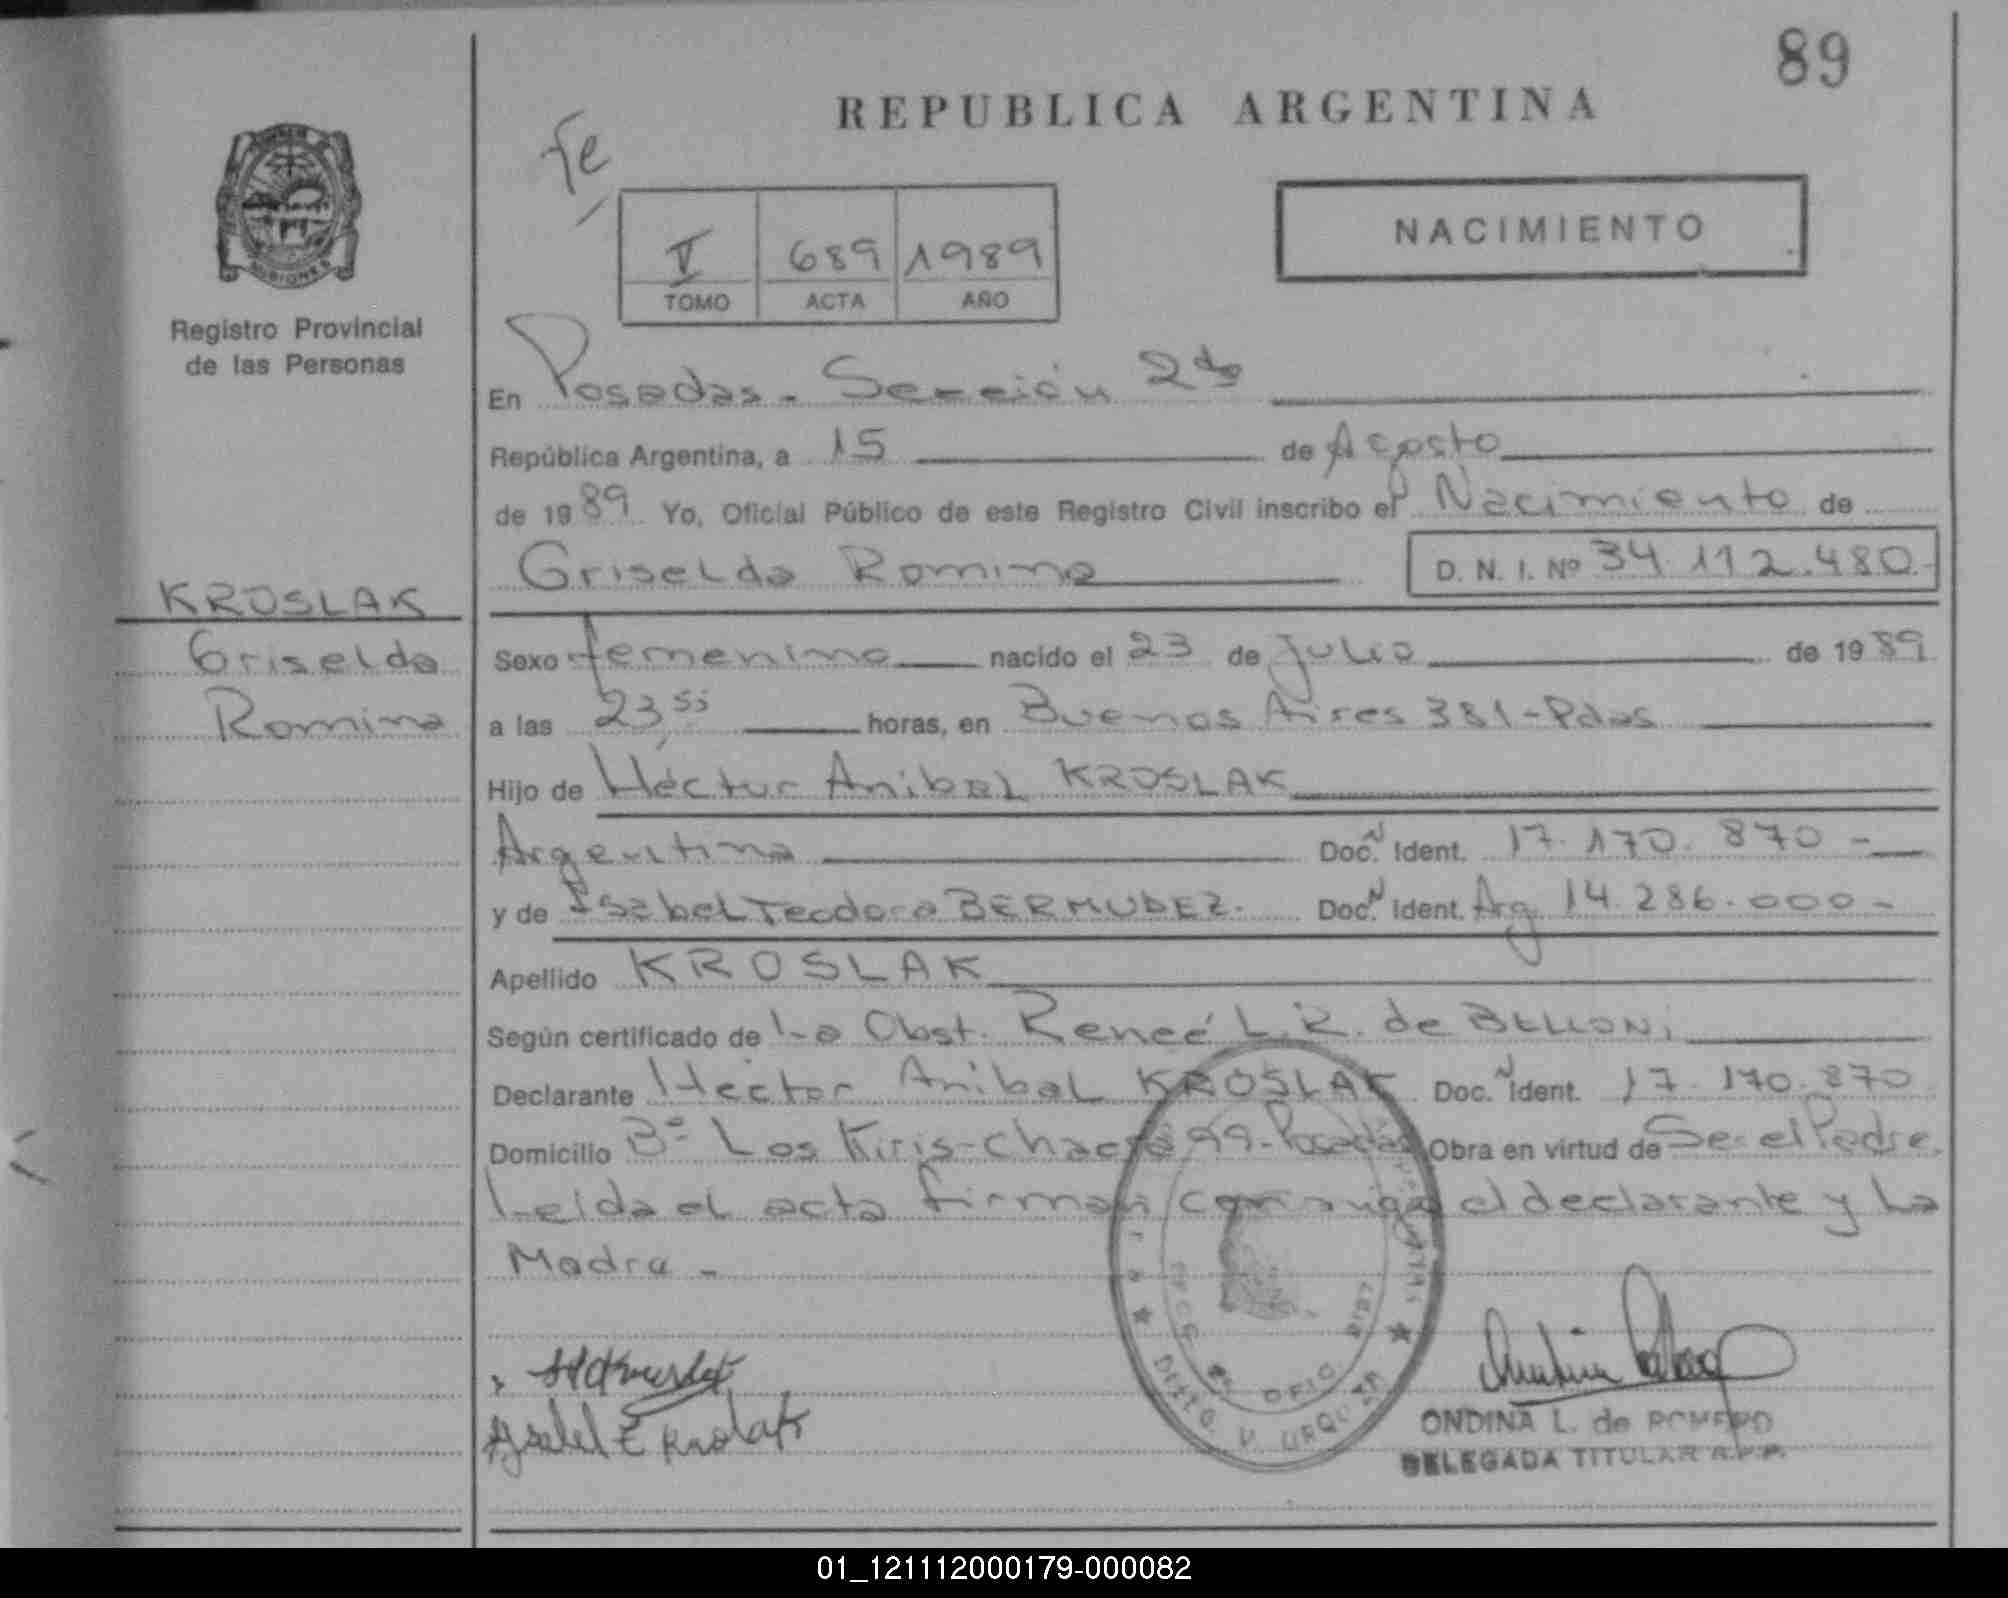 89
REPUBLICA ARGENTINA
Fe
NACIMIENTO
V 689 1989
TOMO ACTA AÑO
MISIONES
Registro Provincial
de las Personas
En Posadas - Sección 2da
República Argentina, a 15 de Agosto
de 1989 Yo, Oficial Público de este Registro Civil inscribo el Nacimiento de
Griselda Romina D. N. I. Nº 34.112.480-
KROSLAK
Griselda
Romina
Sexo femenino nacido el 23 de Julio de 1989
a las 23,55 horas, en Buenos Aires 381-Pdas
Hijo de Héctor Anibal KROSLAK
Argentina Doc. N Ident. 17.170.870-
y de Isabel Teodora BERMUDEZ. Doc. N Ident. Arg. 14.286.000-
Apellido KROSLAK
Según certificado de La Obst. Reneé L.R. de BELLONi
Declarante Hector Anibal KROSLAK Doc. N Ident. 17.170.870
Domicilio Bº Los Kiris-Chacra 99-Posadas Obra en virtud de Ser el Padre.
Leida el acta firman conmigo el declarante y La
Madre -
OFIC.
DELEG. V. URQUIZA
ONDINA L. de ROMERO
DELEGADA TITULAR R.P.P.
01_121112000179-000082